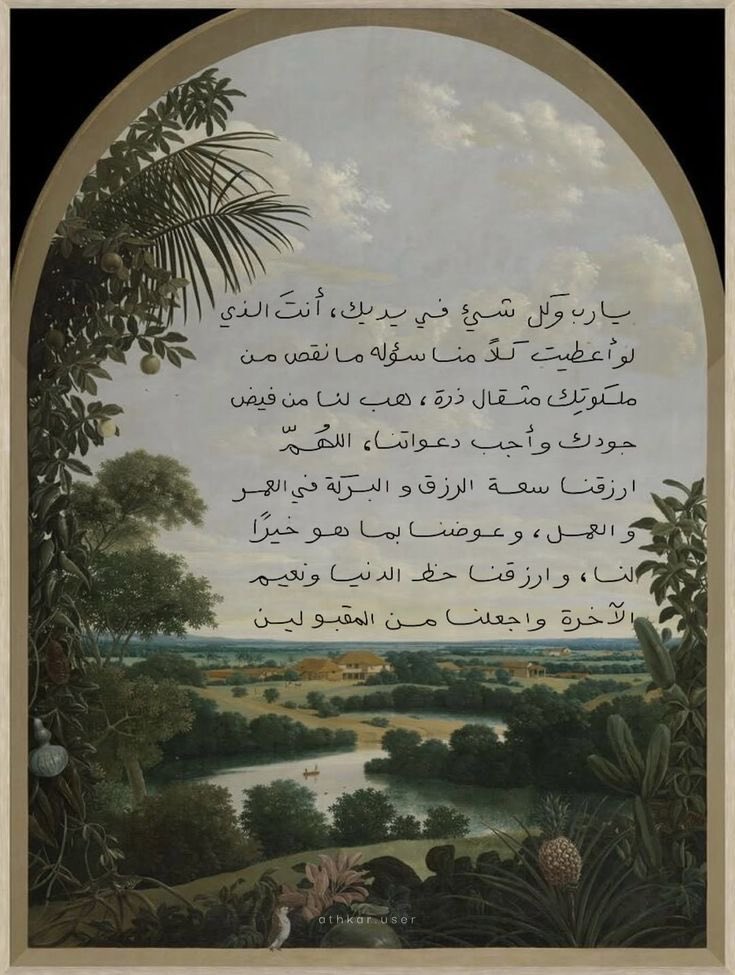 يارب وَكل شيءٍ في يديك، أنتَ الذي
لو أعطيت كلاً منا سؤله ما نقص من
ملكوتِك مثقال ذرة، هب لنا من فيض
جودك وأجب دعواتنا، اللهُمّ
ارزقنا سعة الرزق و البركة في العمر
و العمل، وعوضنا بما هو خيرًا
لنا، وارزقنا حظ الدنيا ونعيم
الآخرة واجعلنا من المقبولين
athkar.user